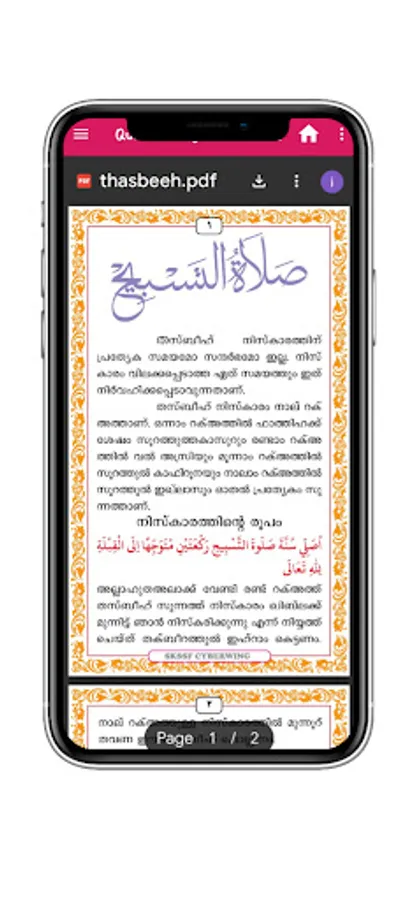 thasbeeh.pdf
i
١
صلاة التسبيح
തസ്ബീഹ് നിസ്കാരത്തിന്
പ്രത്യേക സമയമോ സന്ദർഭമോ ഇല്ല. നിസ്
കാരം വിലക്കപ്പെടാത്ത ഏത് സമയത്തും ഇത്
നിർവഹിക്കപ്പെടാവുന്നതാണ്.
തസ്ബീഹ് നിസ്കാരം നാല് റക്
അത്താണ്. ഒന്നാം റക്അത്തിൽ ഫാത്തിഹക്ക്
ശേഷം സൂറത്തുത്തകാസുറും രണ്ടാം റക്അ
ത്തിൽ വൽ അസ്വ്‌രിയും മൂന്നാം റക്അത്തിൽ
സൂറത്തുൽ കാഫിറൂനയും നാലാം റക്അത്തിൽ
സൂറത്തുൽ ഇഖ്ലാസും ഓതൽ പ്രത്യേകം സു
ന്നത്താണ്.
നിസ്കാരത്തിന്റെ രൂപം
أُصَلِّي سُنَّةَ صَلٰوةِ التَّسْبِيحِ رَكْعَتَيْنِ مُتَوَجِّهًا إِلَى الْقِبْلَةِ
لِلّٰهِ تَعَالَى
അല്ലാഹുതആലാക്ക് വേണ്ടി രണ്ട് റക്അത്ത്
തസ്ബീഹ് സുന്നത്ത് നിസ്കാരം ഖിബ്‌ലക്ക്
മുന്നിട്ട് ഞാൻ നിസ്കരിക്കുന്നു എന്ന് നിയ്യത്ത്
ചെയ്ത് തക്ബീറത്തുൽ ഇഹ്റാം കെട്ടണം.
SKSSF CYBERWING
٢
നാല് നിസ്കാരത്തിൽ മുന്നൂറ്
തവണ
Page 1 / 2